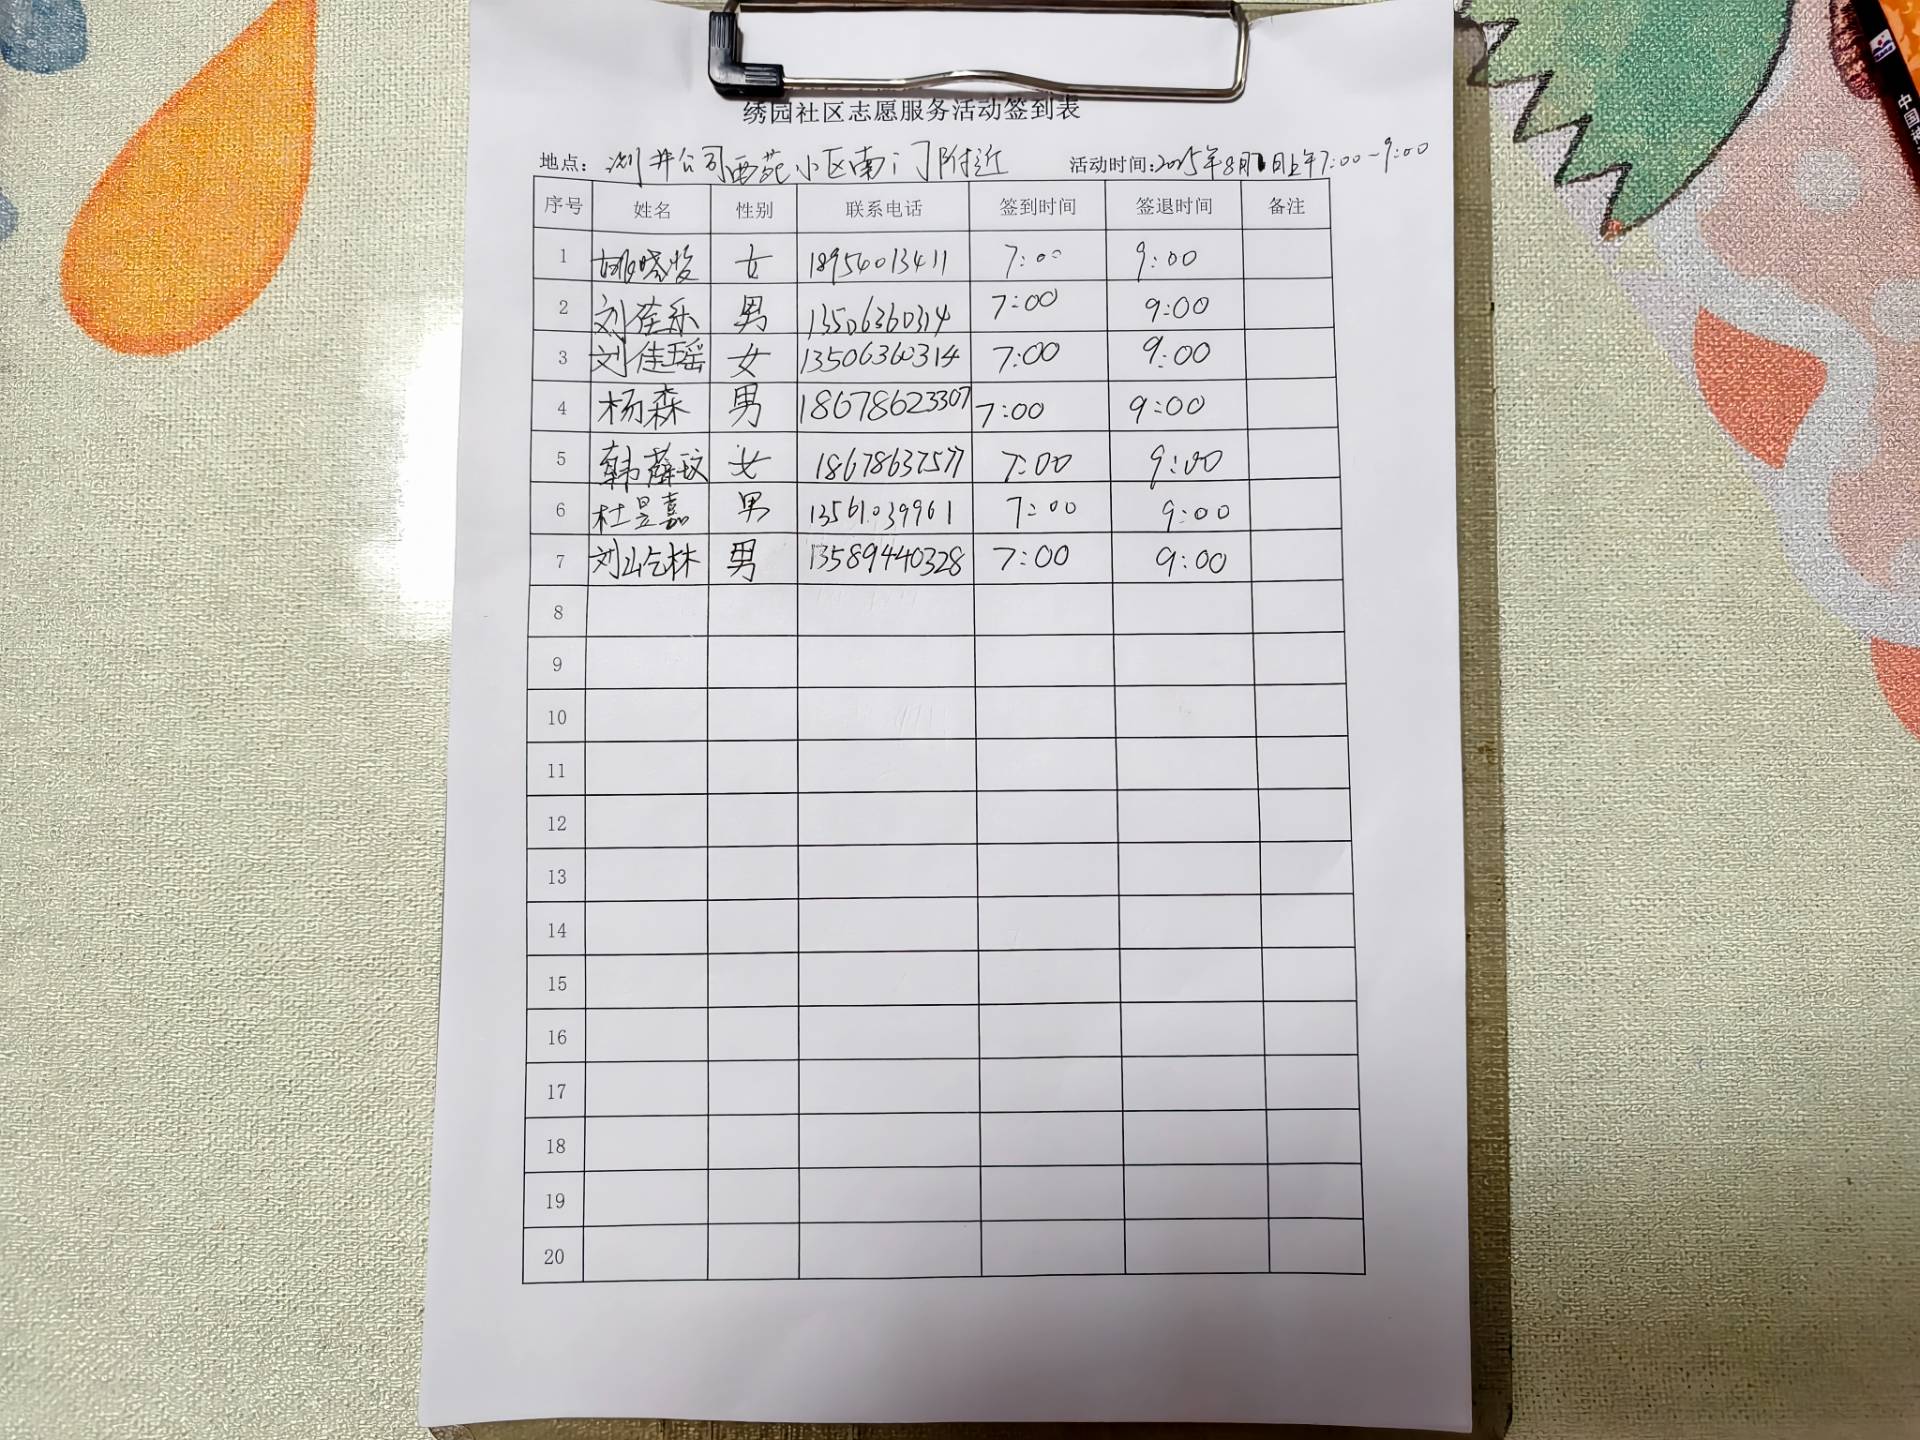 绣园社区志愿服务活动签到表
地点: 测井公司西苑小区南门附近 活动时间:2025年8月1日上午7:00-9:00
序号 姓名 性别 联系电话 签到时间 签退时间 备注
1 姚晓 女 18954013411 7:00 9:00
2 刘荏乐 男 13506360314 7:00 9:00
3 刘佳瑶 女 13506360314 7:00 9:00
4 杨森 男 18678623307 7:00 9:00
5 韩薛玟 女 18678637577 7:00 9:00
6 杜昱嘉 男 13561039961 7:00 9:00
7 刘屹林 男 13589440328 7:00 9:00
8
9
10
11
12
13
14
15
16
17
18
19
20
中国